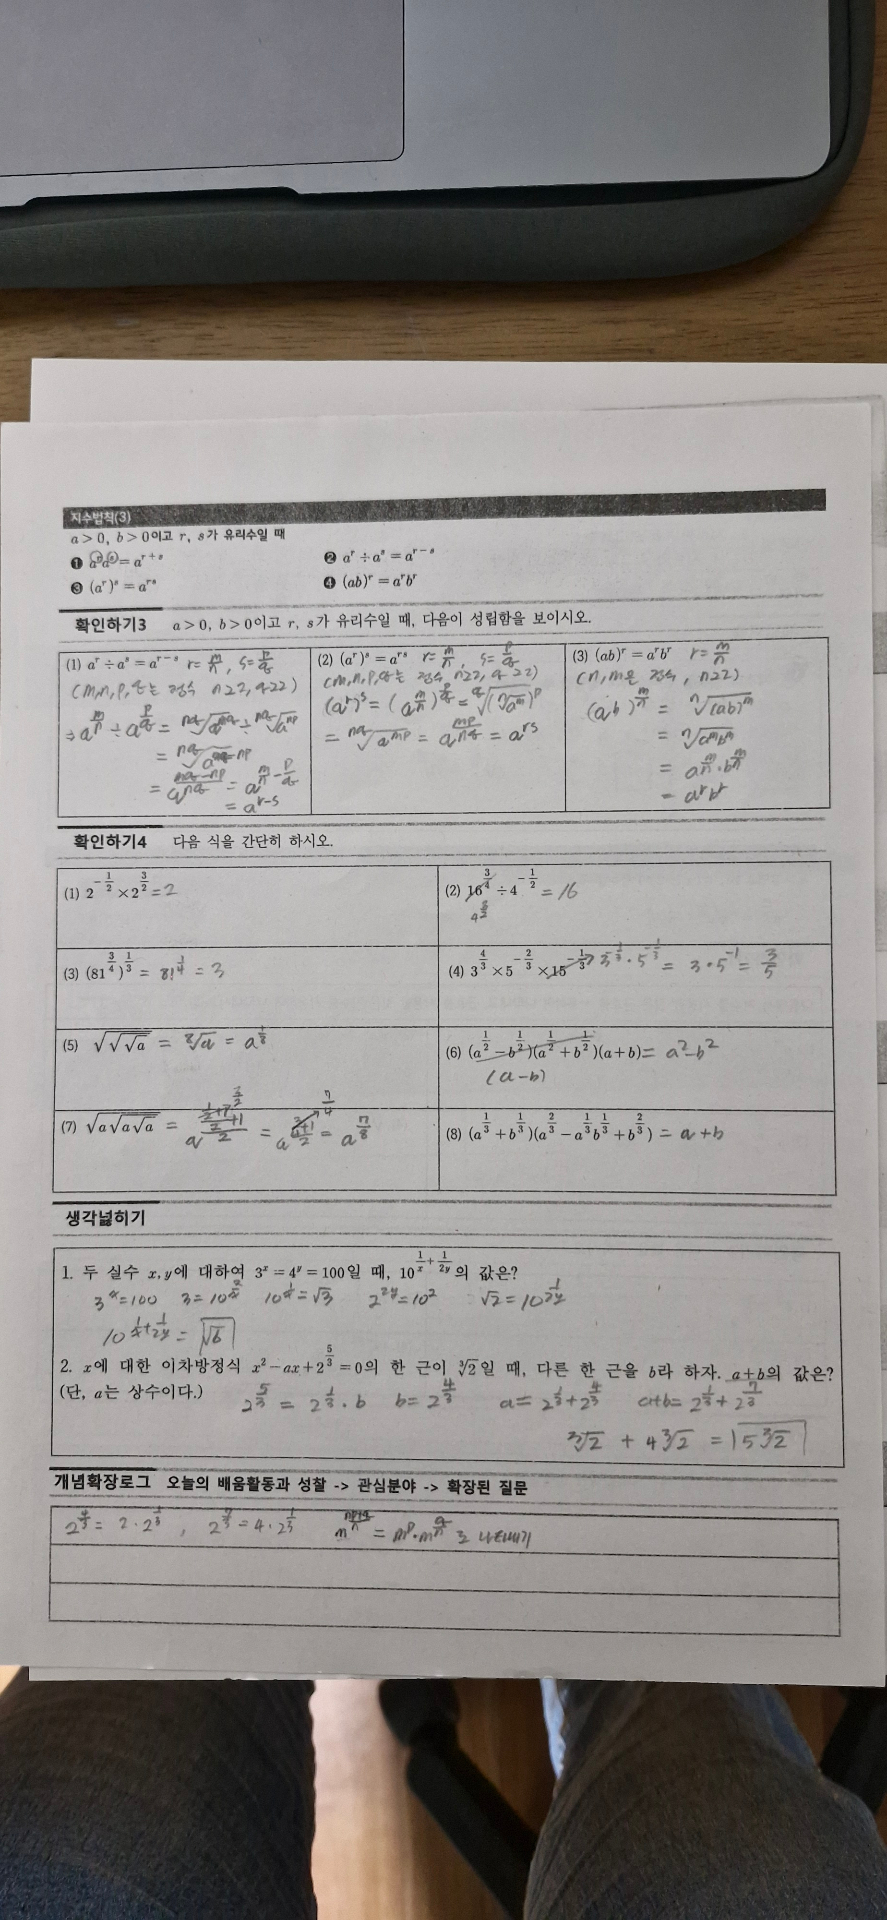 지수법칙(3)
a>0, b>0이고 r, s가 유리수일 때
❶ aʳaˢ=aʳ⁺ˢ ❷ aʳ÷aˢ=aʳ⁻ˢ
❸ (aʳ)ˢ=aʳˢ ❹ (ab)ʳ=aʳbʳ
확인하기3 a>0, b>0이고 r, s가 유리수일 때, 다음이 성립함을 보이시오.
(1) aʳ÷aˢ=aʳ⁻ˢ r=m/n, s=p/q
(m,n,p,q는 정수 n≥2, q≥2)
⇒ a^(m/n)÷a^(p/q) = ⁿq√(a^(mq))÷ⁿq√(a^(np))
= ⁿq√(a^(mq-np))
= a^((mq-np)/nq) = a^(m/n-p/q)
= a^(r-s)
(2) (aʳ)ˢ=aʳˢ r=m/n, s=p/q
(m,n,p,q는 정수 n≥2, q≥2)
(aʳ)ˢ=(a^(m/n))^(p/q)=q√((ⁿ√(a^m))^p)
= nq√(a^(mp)) = a^(mp/nq) = a^(rs)
(3) (ab)ʳ=aʳbʳ r=m/n
(n,m은 정수, n≥2)
(ab)^(m/n) = ⁿ√((ab)^m)
= ⁿ√(a^m b^m)
= a^(m/n)·b^(m/n)
= aʳbʳ
확인하기4 다음 식을 간단히 하시오.
(1) 2^(-1/2)×2^(3/2)=2
(2) 16^(3/4)÷4^(-1/2)=16
4^(3/2)
(3) (81^(3/4))^(1/3) = 81^(1/4) = 3
(4) 3^(4/3)×5^(-2/3)×15^(-1/3) → 3^(-1/3)·5^(-1/3) = 3·5^(-1) = 3/5
(5) √√√a = ⁸√a = a^(1/8)
(6) (a^(1/2)-b^(1/2))(a^(1/2)+b^(1/2))(a+b)= a²-b²
(a-b)
(7) √(a√(a√a)) = a^(((1/2+1)/2+1)/2) 3/2 = a^((3/4+1)/2) 7/4 = a^(7/8)
(8) (a^(1/3)+b^(1/3))(a^(2/3)-a^(1/3)b^(1/3)+b^(2/3)) = a+b
생각넓히기
1. 두 실수 x, y에 대하여 3^x=4^y=100일 때, 10^(1/x+1/2y)의 값은?
3^x=100 3=10^(2/x) 10^(1/x)=√3 2^(2y)=10² √2=10^(1/2y)
10^(1/x+1/2y) = √6
2. x에 대한 이차방정식 x²-ax+2^(5/3)=0의 한 근이 ³√2일 때, 다른 한 근을 b라 하자. a+b의 값은?
(단, a는 상수이다.) 2^(5/3) = 2^(1/3)·b b=2^(4/3) a=2^(1/3)+2^(4/3) a+b=2^(1/3)+2^(7/3)
³√2 + 4³√2 = 5³√2
개념확장로그 오늘의 배움활동과 성찰 -> 관심분야 -> 확장된 질문
2^(4/3)=2·2^(1/3), 2^(7/3)=4·2^(1/3) m^((np+q)/n) = m^p·m^(q/n) 로 나타내기